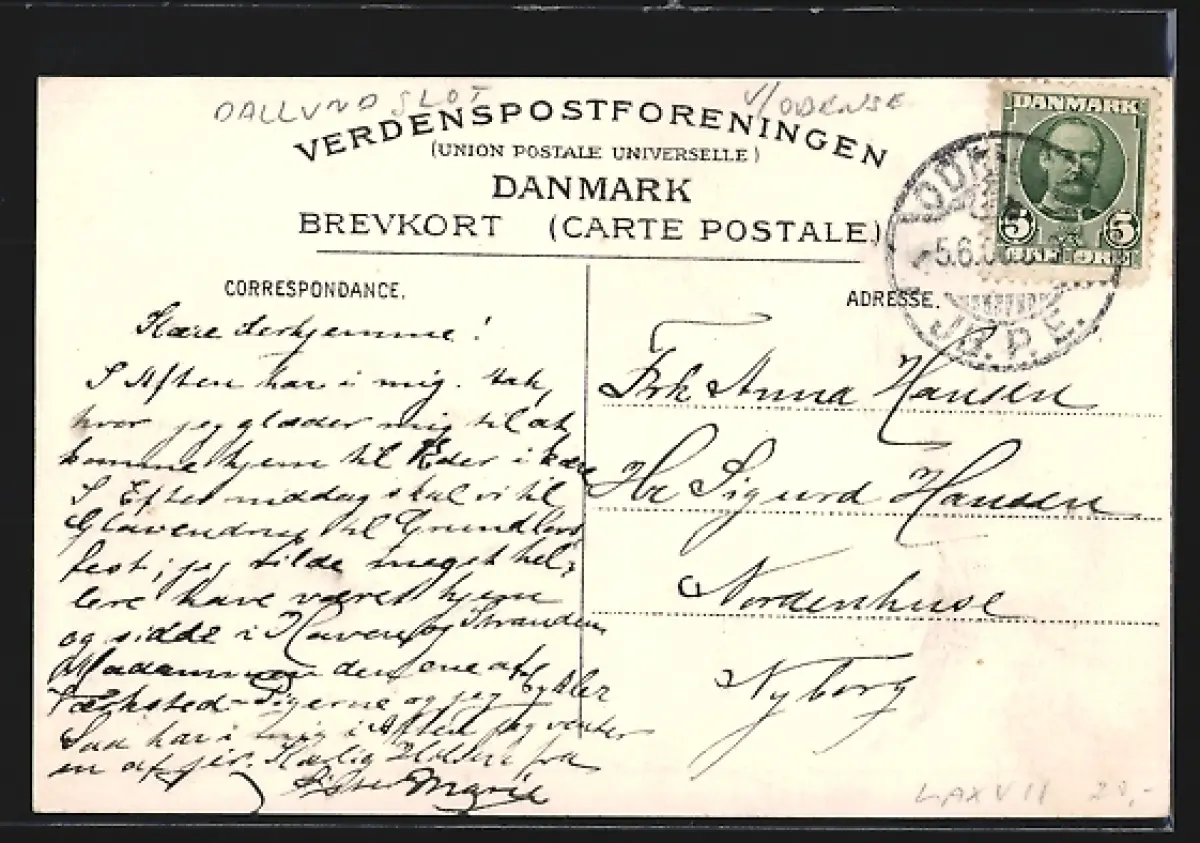 DALLUND SLOT V/ ODENSE
VERDENSPOSTFORENINGEN
(UNION POSTALE UNIVERSELLE)
DANMARK
BREVKORT (CARTE POSTALE.)
DANMARK
5 5
ØRE ØRE
5.6.
J.B.P.E.
CORRESPONDANCE.
ADRESSE.
Kære derhjemme!
I Aften har i mig. tak,
hvor jeg glæder mig til at
komme hjem til Eder i kære
I Eftermiddag skal vi til
Glavendrup til Grundlovs
fest, jeg vilde meget hel-
lere have været hjem
og sidde i Haven og Stranden
Madammen den ene af
Pigerne og jeg
Saa har i mig i Aften jeg venter
en af jer. Kærlig Hilsen fra
Søster Marie
Frk Anna Hansen
Hr Sigurd Hansen
Nordenhuse
Nyborg
LAXVII 20,-